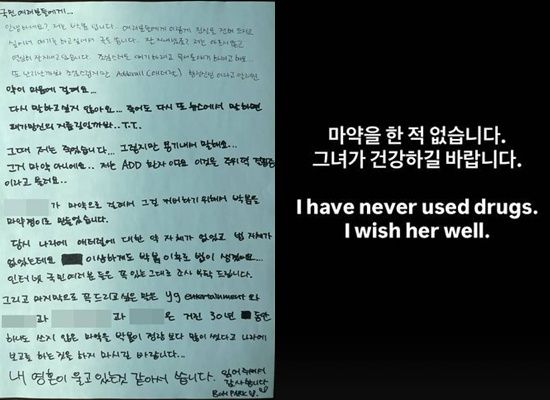 국민 여러분들에게...
안녕하세요? 저는 박봄 입니다. 여러분들에게 이렇게 진심을 전해 드리고
싶어서 얘기를 하고싶어서 글을 씁니다. 잘 지내셨죠? 저는 아프지 않고
열심히 잘지내고 있습니다.
또 조심스럽지만 Adderall (애더럴)
약이 마음에 걸려요...
다시 말하고 싶지 않아요... 죽어도 다시 또 뉴스에서 말하면
패가망신의 지름길일까봐.. T.T.
그때 저는 죽었습니다... 그렇지만 용기내어 말해요...
그거 마약 아니에요.. 저는 ADD 환자 에요 이것은 주위력 결핍증
이라고 불러요..
가 마약으로 걸려서 그걸 커버하기 위해서 박봄을
마약쟁이로 만들었습니다.
당시 나라에 애더럴에 대한 약 자체가 없었고 법 자체가
없었는데요 이상하게도 박봄 이후로 법이 생겼어요...
인터넷 국민 여러분 들은 꼭 있는그대로 조사 부탁 드립니다.
그리고 마지막으로 꼭 드리고 싶은 말은 yg entertainment 와
과 과 은 거진 30년 동안
하나도 쓰지 않은 마약을 박봄이 정량 보다 많이 썼다고 나라에
보고를 하는것을 하지 마시길 바랍니다...
내 영혼이 울고 있는것 같아서 씁니다. 읽어 주셔서
감사합니다
Bom PARK
마약을 한 적 없습니다.
그녀가 건강하길 바랍니다.
I have never used drugs.
I wish her well.